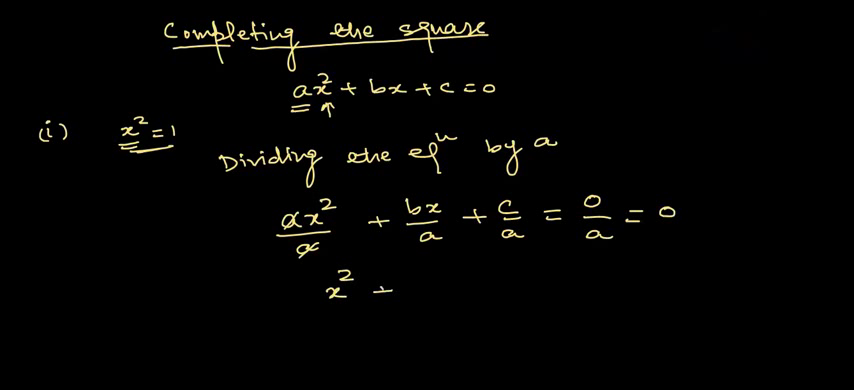 Completing the square
ax² + bx + c = 0
(i) x² = 1
Dividing the eqⁿ by a
ax²/a + bx/a + c/a = 0/a = 0
x² +